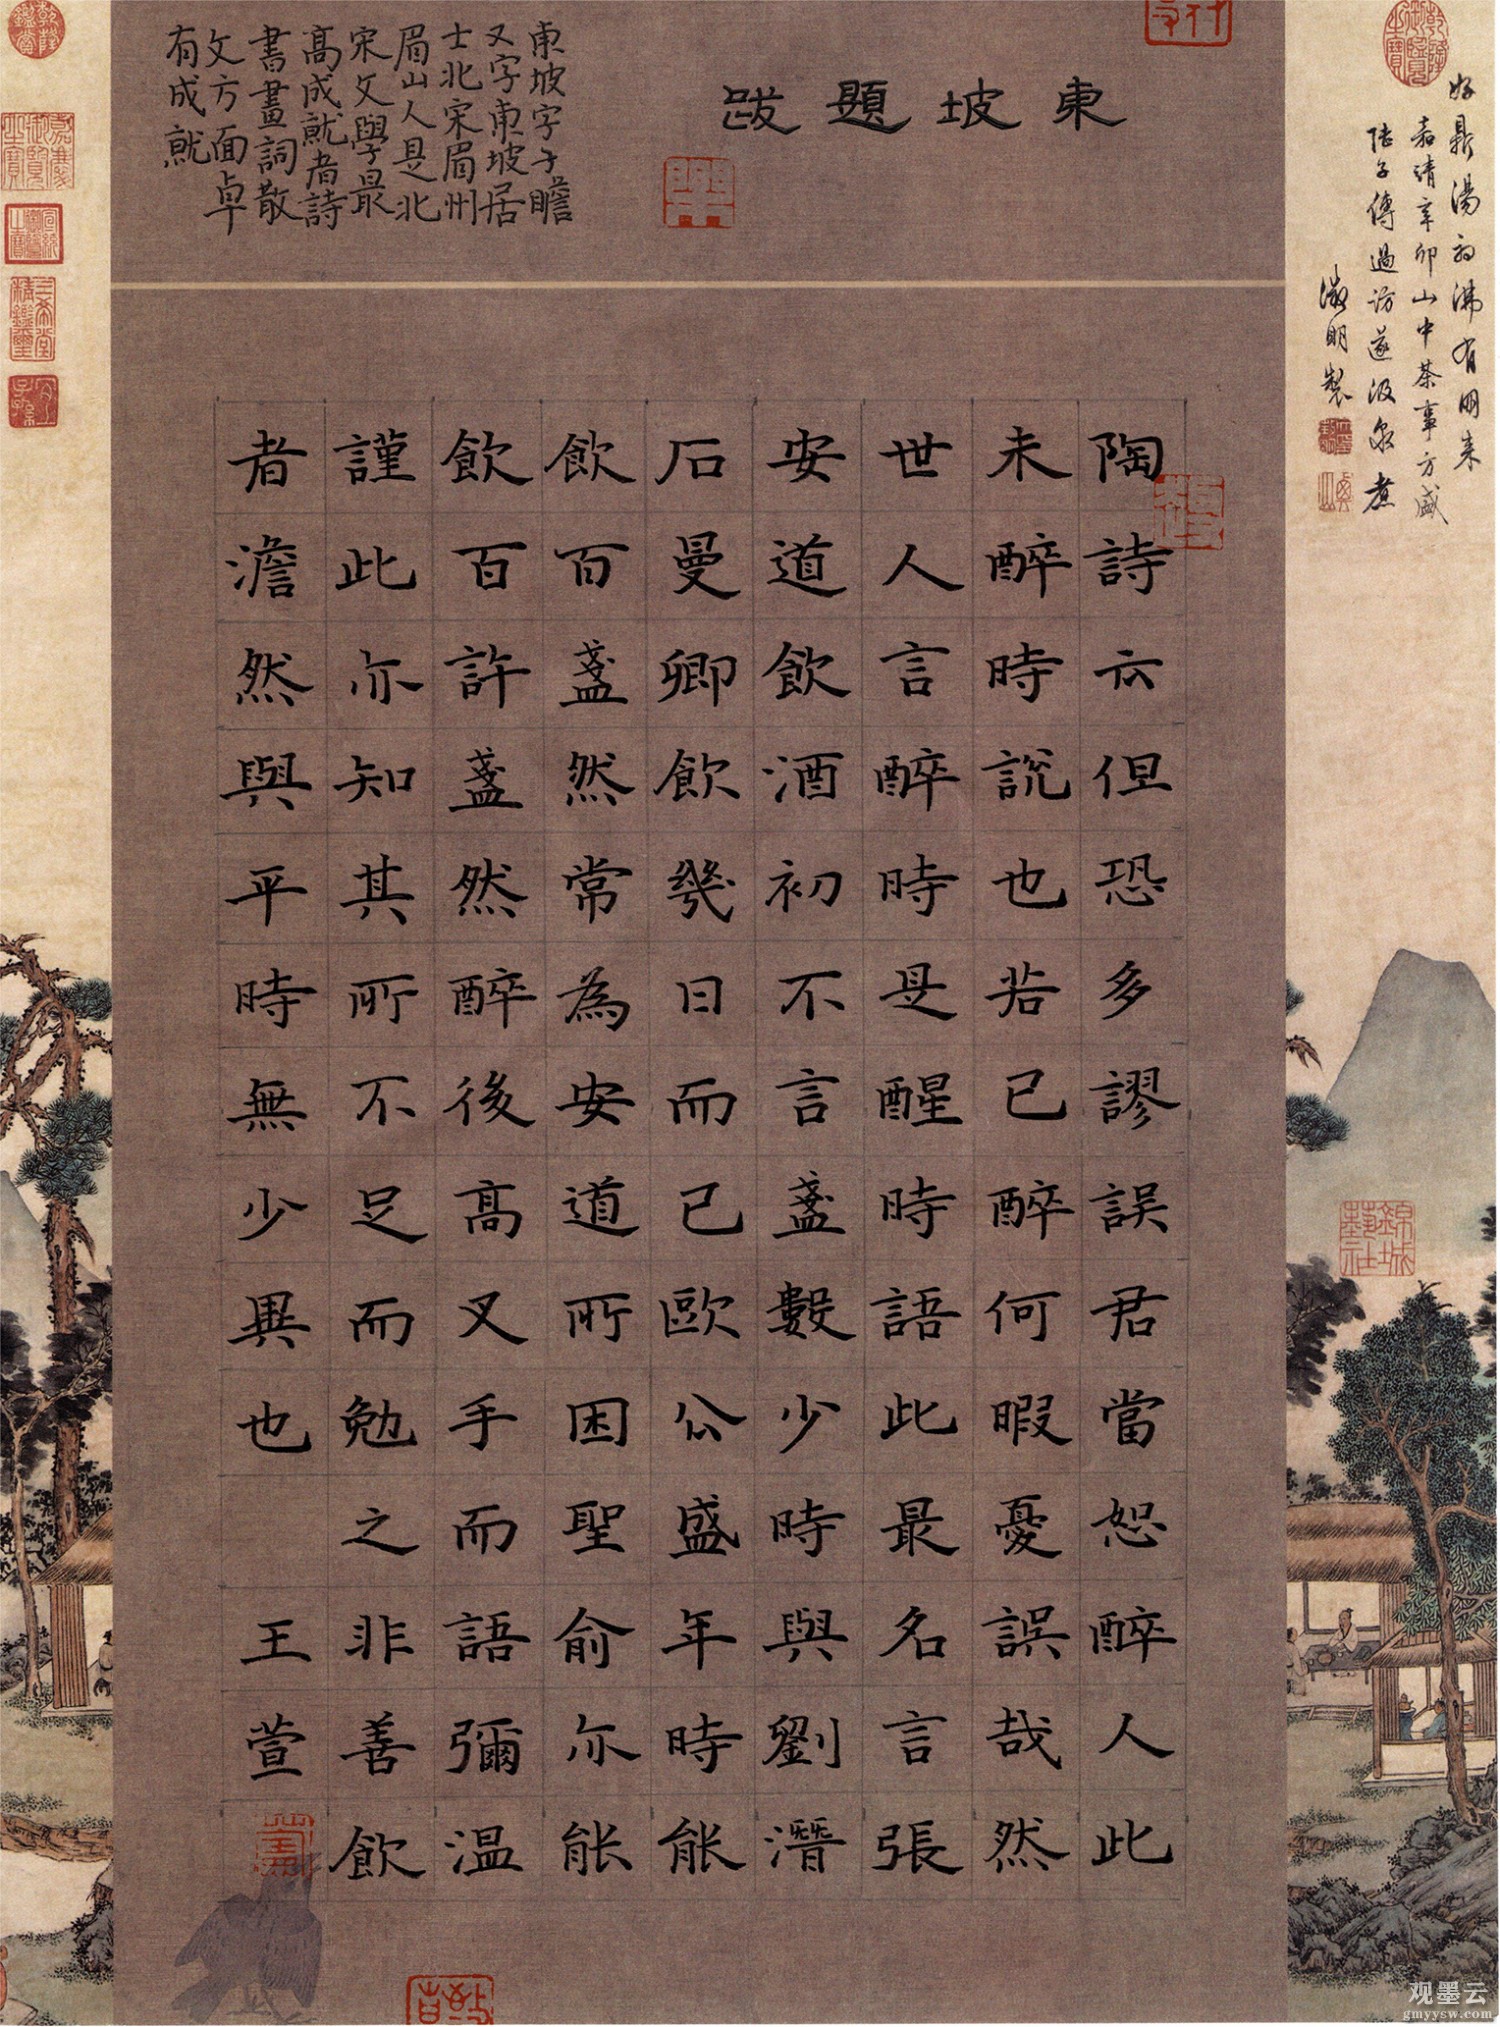 好鼎湯初沸有朋来
嘉靖辛卯山中茶事方盛
陸子傳過訪遂汲泉煮
徵明製
東坡題跋
東坡字子瞻
又字東坡居
士北宋眉州
眉山人是北
宋文學最
高成就者詩
書畫詞散
文方面卓
有成就
陶詩云但恐多謬誤君當恕醉人此
未醉時說也若已醉何暇憂誤哉然
世人言醉時是醒時語此最名言張
安道飲酒初不言盞數少時與劉潛
石曼卿飲幾日而已歐公盛年時能
飲百盞然常為安道所困聖俞亦能
飲百許盞然醉後高叉手而語彌温
謹此亦知其所不足而勉之非善飲
者澹然與平時無少異也 王萱
乾隆御覽之寶
乾隆鑑賞
嘉慶御覽之寶
宣統御覽之寶
三希堂精鑑璽
宜子孫
錦城藝社
观墨云
gmyysw.com